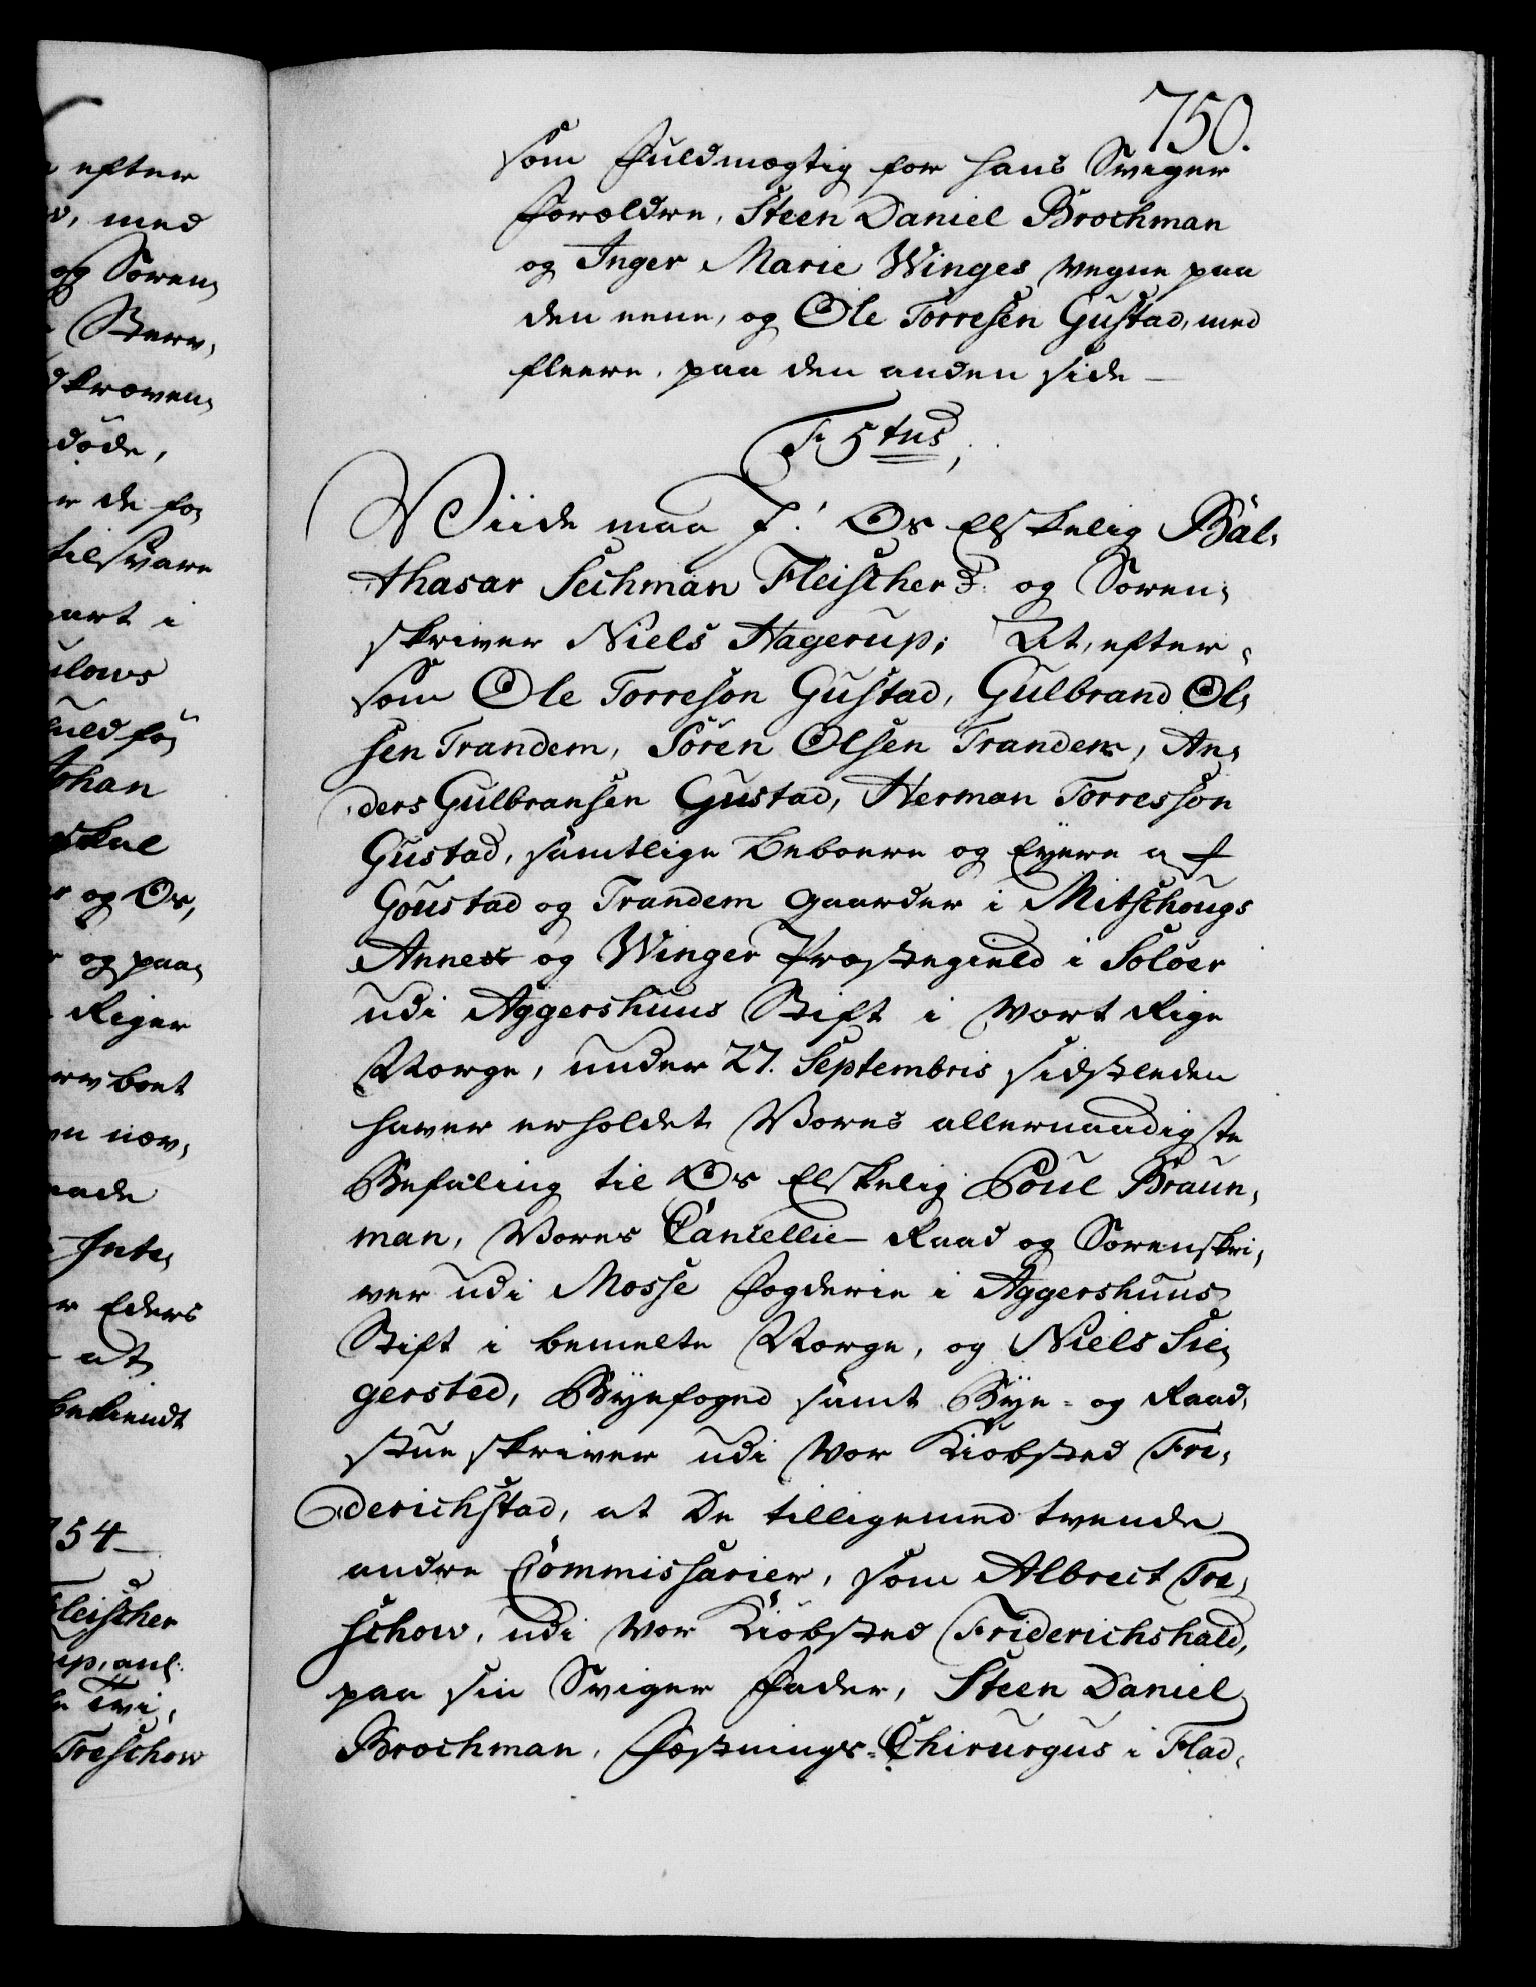 750.
som Fuldmægtig for hans Sviger
Forældre, Steen Daniel Brochman
og Inger Marie Winges vegne paa
den eene, og Ole Torresen Gustad, med
fleere, paa den anden side —
F 5tus,
Viide maa I! Os Elskelig Bal,
thasar Sechman Fleischer og Soren,
skriver Niels Hagerup; At, efter,
som Ole Torreson Gustad, Gulbrand Ol,
sen Trandem, Sören Olsen Trandem, An,
ders Gulbransen Gustad, Herman Torresson
Gustad, samtlige Beboere og Eyere af
Goustad og Trandem gaarder i Mitschougs
Annex og Winger Præstegield i Soloer
udi Aggershuus Stift i Vort Rige
Norge, under 27. Septembris sidstleden
haver erholdet Vores allernaadigste
Befaling til Os Elskelig Poul Braun,
man, Vores Cancellie-Raad og Sorenskri,
ver udi Mosse Fogderie i Aggershuus
Stift i bemelte Norge, og Niels Sie,
gersted, Byefoged samt Bye- og Raad,
stueskriver udi Vor Kiøbsted Fri,
derichstad, at De tilligemed tvende
andre Commissarier, som Albrect Tre,
schow, udi Vor Kiöbsted Friderichshald,
paa sin Sviger Fader, Steen Daniel
Brochman, Fæstnings-Chirurgus i Flad,
efter
med
og Soren,
de for
tilsvare
Johan
og Os,
og paa,
Riger
Eders
at
bekiendt
754—
Fleischer
Treschow